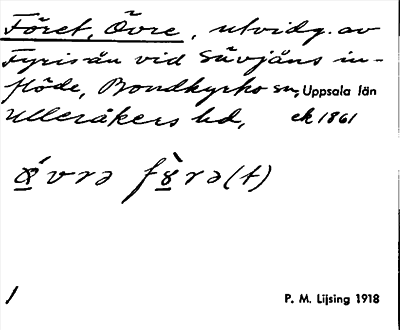 Föret, Övre, utvidg. av
Fyrisån vid Sävjåns in-
flöde, Bondkyrko sn, Uppsala län
Ulleråkers hd, ek 1861
ö́vrə fö̀rə(t)
1
P. M. Lijsing 1918